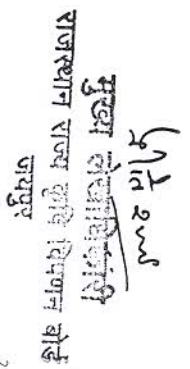 मुख्य लेखाधिकारी
राजस्थान राज्य कृषि विपणन बोर्ड
जयपुर